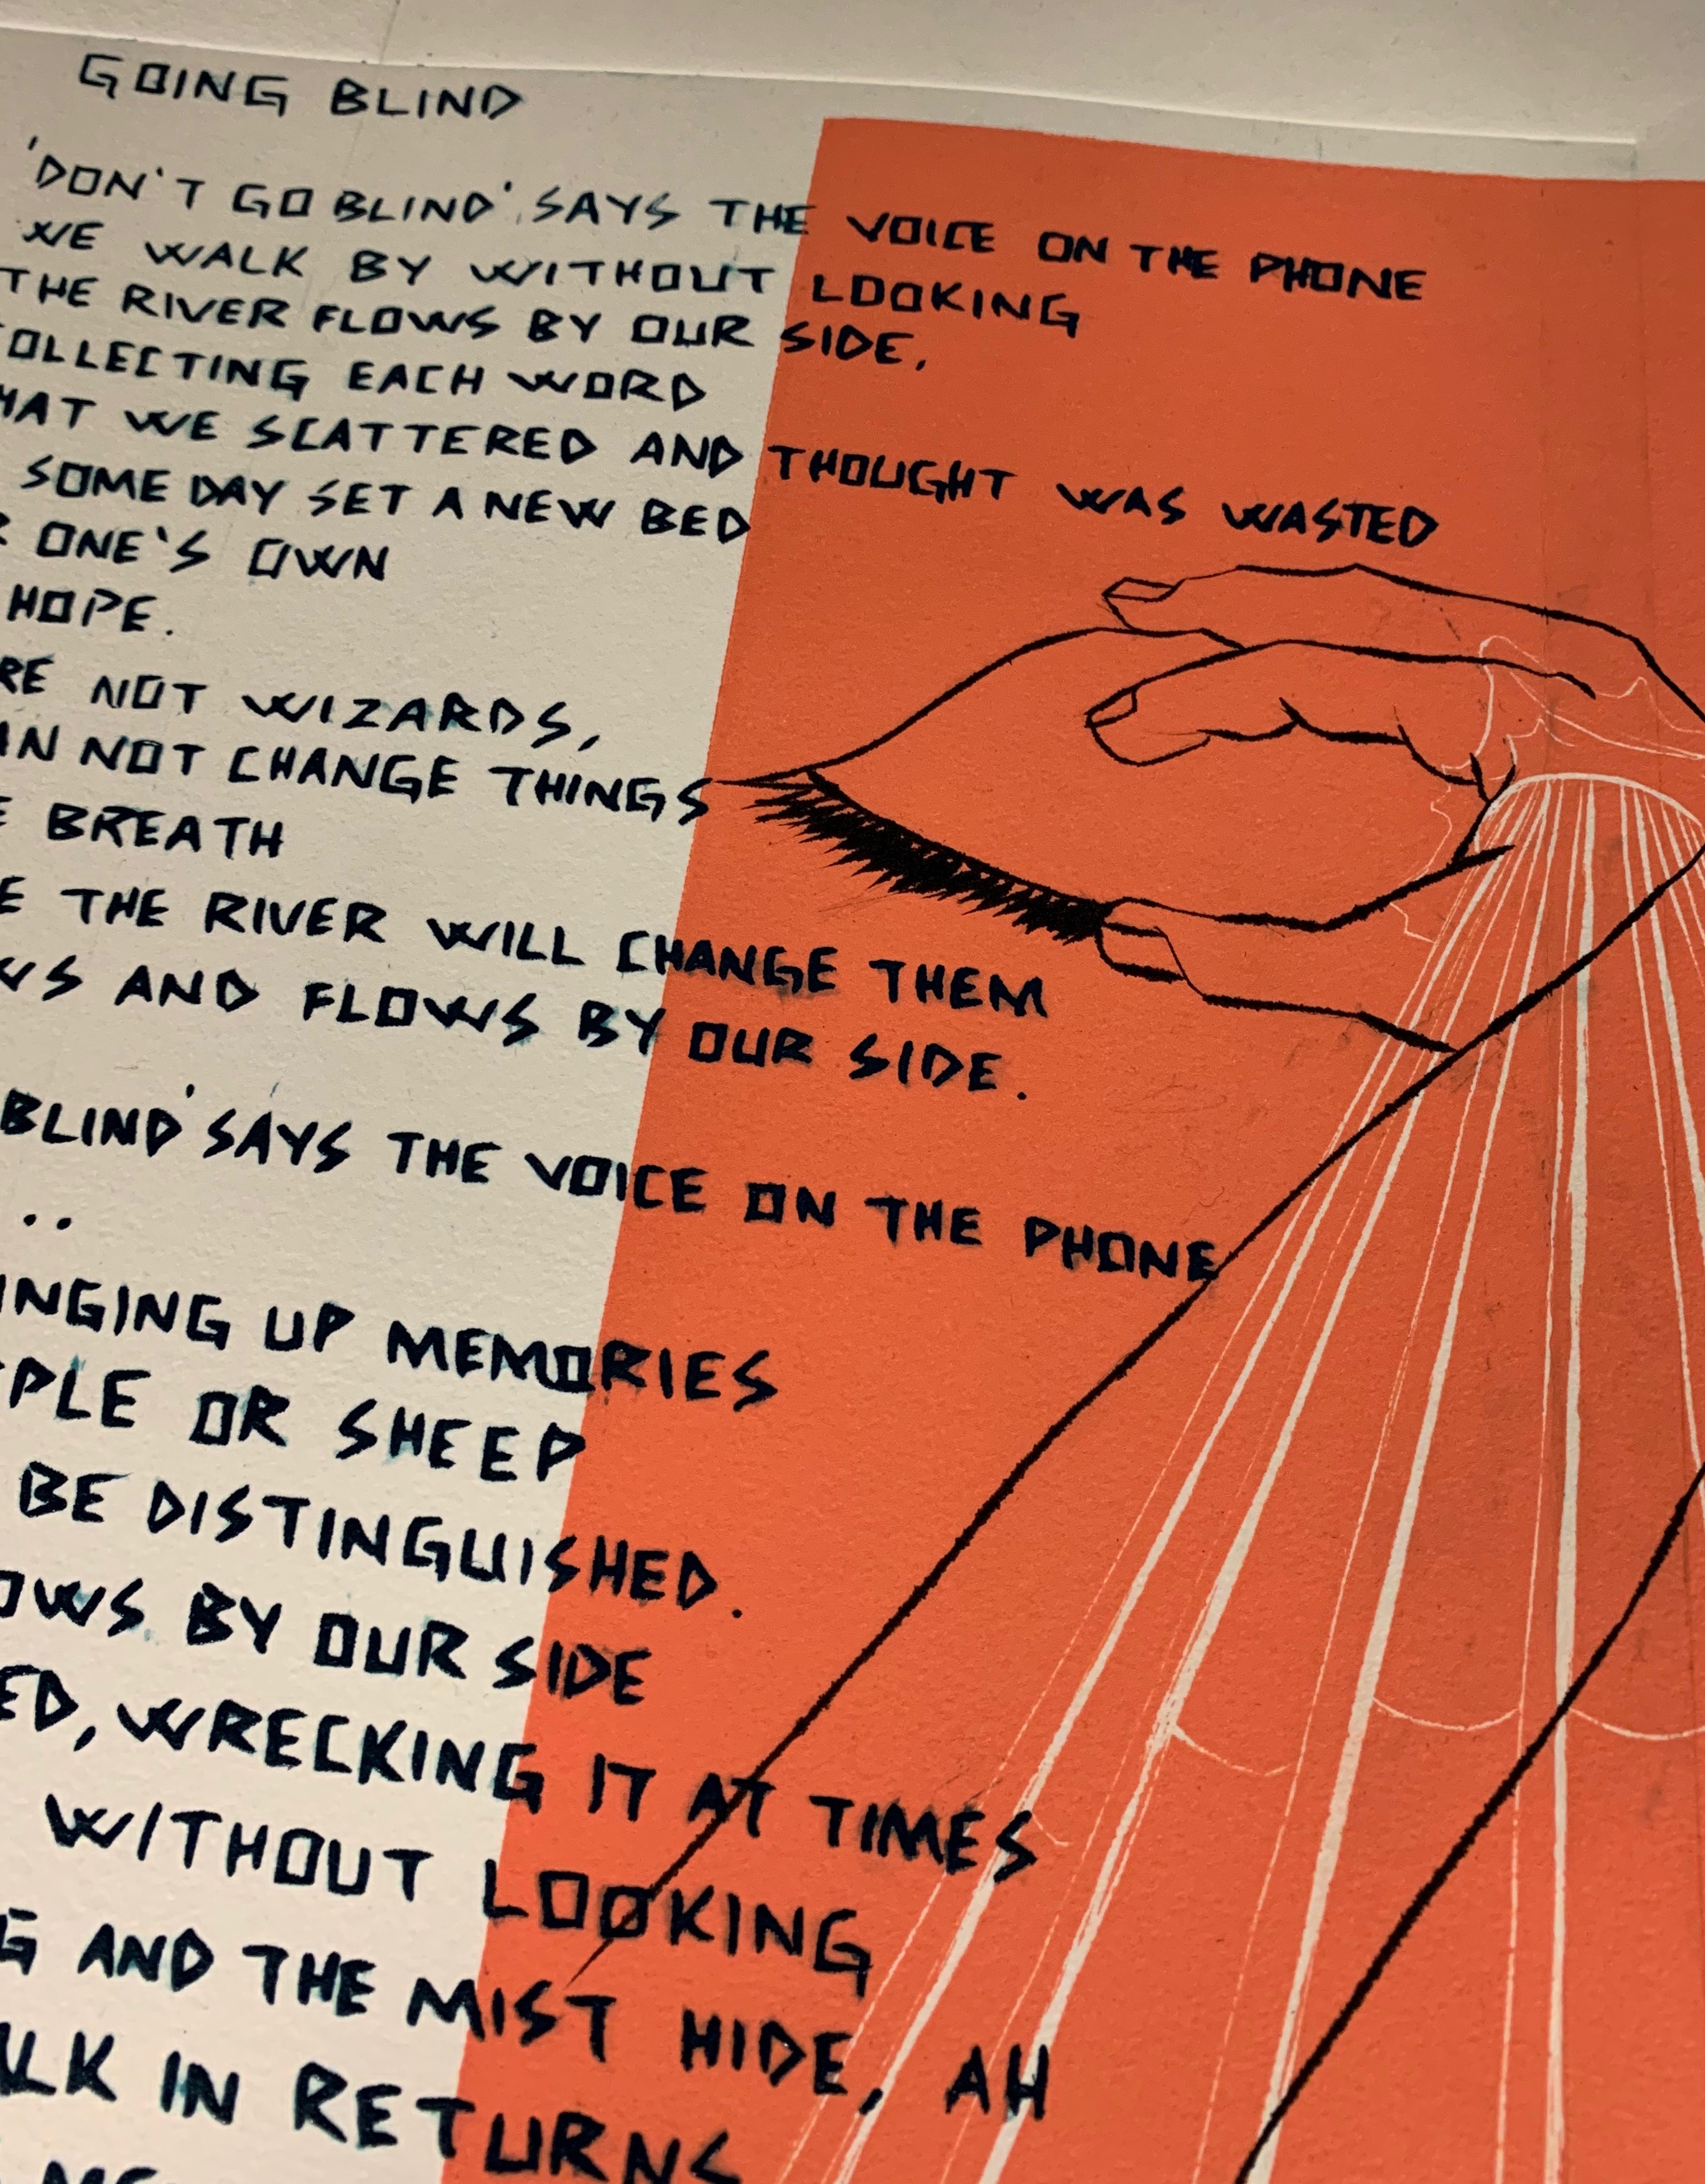 GOING BLIND
'DON'T GO BLIND' SAYS THE VOICE ON THE PHONE
WE WALK BY WITHOUT LOOKING
THE RIVER FLOWS BY OUR SIDE,
OLLECTING EACH WORD
HAT WE SCATTERED AND THOUGHT WAS WASTED
SOME DAY SET A NEW BED
ONE'S OWN
HOPE.
RE NOT WIZARDS,
AN NOT CHANGE THINGS
BREATH
E THE RIVER WILL CHANGE THEM
WS AND FLOWS BY OUR SIDE.
BLIND' SAYS THE VOICE ON THE PHONE
..
INGING UP MEMORIES
PLE OR SHEEP
BE DISTINGUISHED.
OWS BY OUR SIDE
ED, WRECKING IT AT TIMES
WITHOUT LOOKING
G AND THE MIST HIDE, AH
ALK IN RETURNS